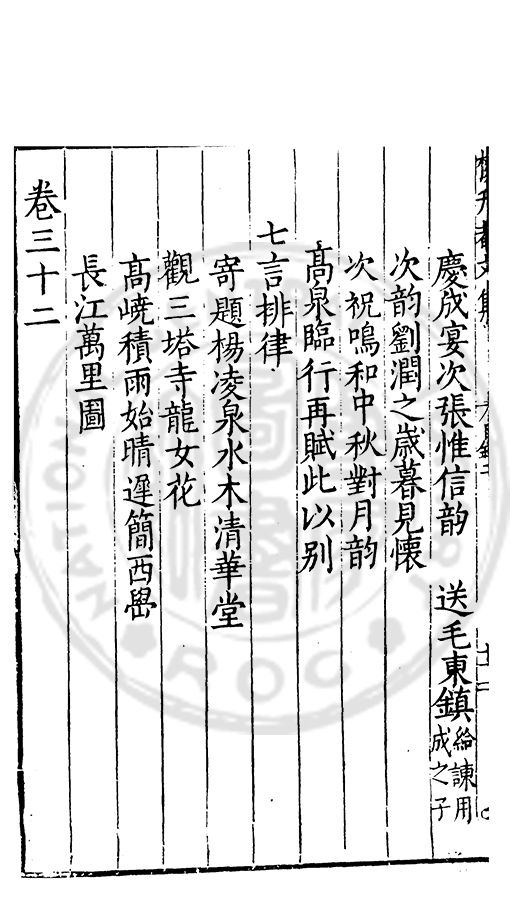 慶成宴次張惟信韵　送毛東鎮給諫用成之子
次韵劉潤之歲暮見懷
次祝鳴和中秋對月韵
高泉臨行再賦此以别
七言排律
寄題楊凌泉水木清華堂
觀三塔寺龍女花
高嶢積雨始晴遲簡西嶨
長江萬里圖
卷三十二